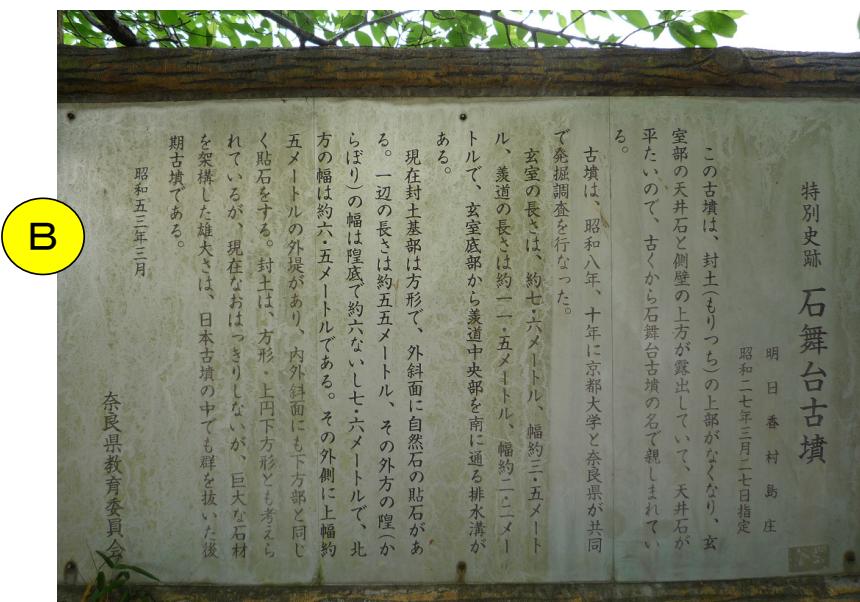 B
特別史跡 石舞台古墳
明日香村島庄
昭和二七年三月二七日指定
この古墳は、封土(もりつち)の上部がなくなり、玄
室部の天井石と側壁の上方が露出していて、天井石が
平たいので、古くから石舞台古墳の名で親しまれてい
る。
古墳は、昭和八年、十年に京都大学と奈良県が共同
で発掘調査を行なった。
玄室の長さは、約七・六メートル、幅約三・五メート
ル、羨道の長さは約一一・五メートル、幅約二・二メー
トルで、玄室底部から羨道中央部を南に通る排水溝が
ある。
現在封土基部は方形で、外斜面に自然石の貼石があ
る。一辺の長さは約五五メートル、その外方の隍(か
らぼり)の幅は隍底で約六ないし七・六メートルで、北
方の幅は約六・五メートルである。その外側に上幅約
五メートルの外堤があり、内外斜面にも下方部と同じ
く貼石をする。封土は、方形 上円下方形とも考えら
れているが、現在なおはっきりしないが、巨大な石材
を架構した雄大さは、日本古墳の中でも群を抜いた後
期古墳である。
昭和五三年三月
奈良県教育委員会